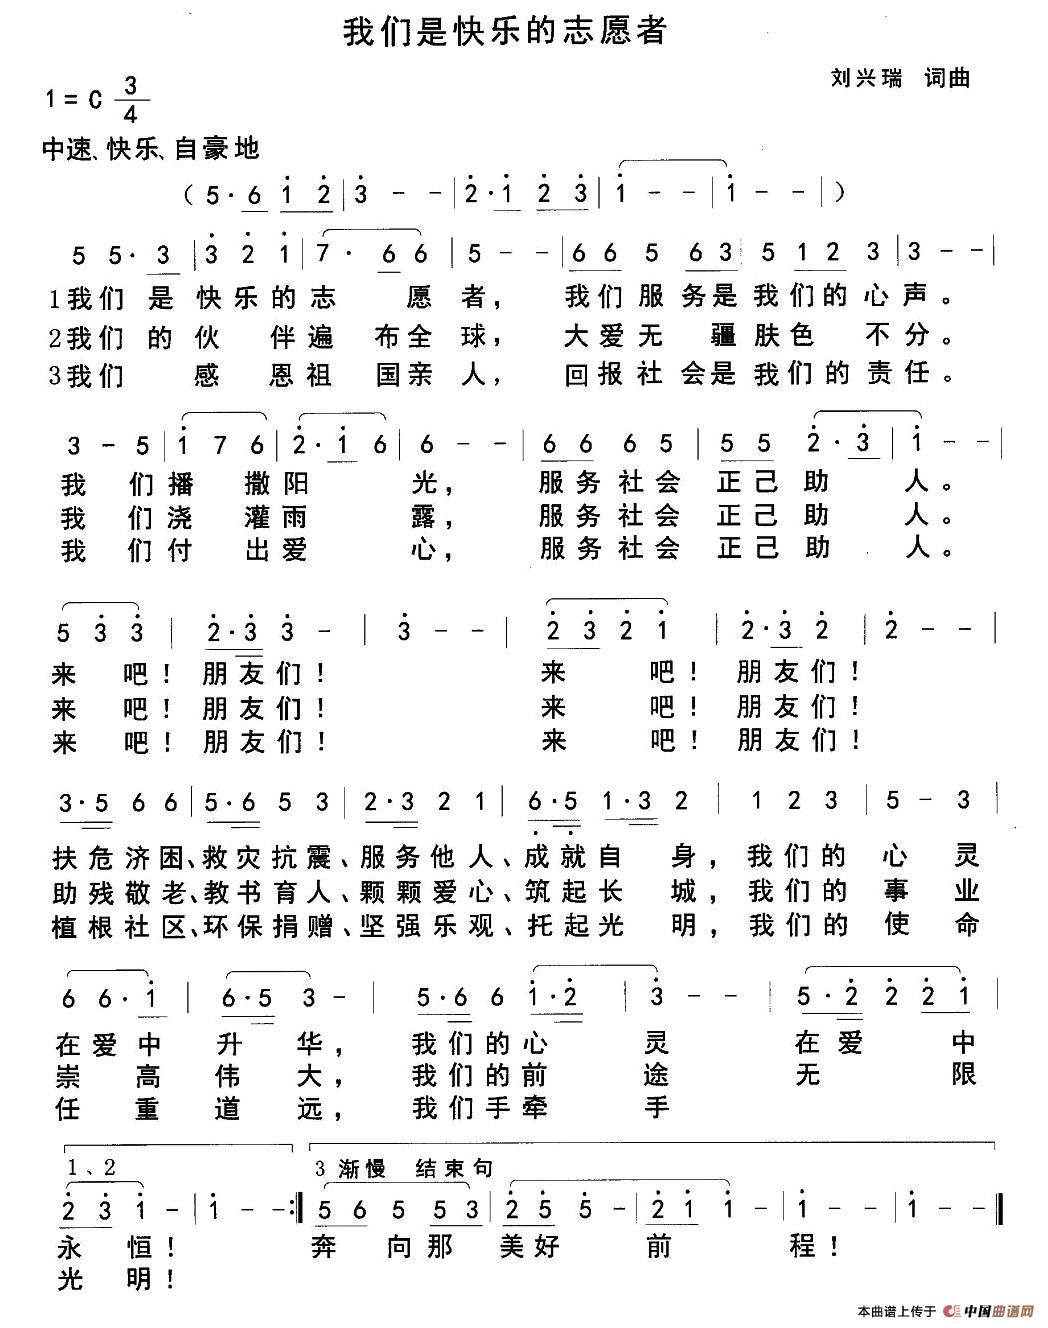 我们是快乐的志愿者
刘兴瑞 词曲
1=C 3/4
中速、快乐、自豪地
（5·6 1 2|3 - -|2·1 2 3|1 - -|1 - -|）
5 5·3|3 2 1|7·6 6|5 - -|6 6 5 6 3|5 1 2 3|3 - -|
1我们是快乐的志愿者，我们服务是我们的心声。
2我们的伙伴遍布全球，大爱无疆肤色不分。
3我们感恩祖国亲人，回报社会是我们的责任。
3 - 5|1 7 6|2·1 6|6 - -|6 6 6 5|5 5 2·3|1 - -|
我们播撒阳光，服务社会正己助人。
我们浇灌雨露，服务社会正己助人。
我们付出爱心，服务社会正己助人。
5 3 3|2·3 3 -|3 - -|2 3 2 1|2·3 2|2 - -|
来吧！朋友们！来吧！朋友们！
来吧！朋友们！来吧！朋友们！
来吧！朋友们！来吧！朋友们！
3·5 6 6|5·6 5 3|2·3 2 1|6·5 1·3 2|1 2 3|5 - 3|
扶危济困、救灾抗震、服务他人、成就自身，我们的心灵
助残敬老、教书育人、颗颗爱心、筑起长城，我们的事业
植根社区、环保捐赠、坚强乐观、托起光明，我们的使命
6 6·1|6·5 3 -|5·6 6 1·2|3 - -|5·2 2 2 1|
在爱中升华，我们的心灵在爱中
崇高伟大，我们的前途无限
任重道远，我们手牵手
1、2
3 渐慢 结束句
2 3 1 -|1 - -:||5 6 5 5 3|2 5 5 -|2 1 1 -|1 - -|1 - -||
永恒！奔向那美好前程！
光明！
本曲谱上传于 中国曲谱网